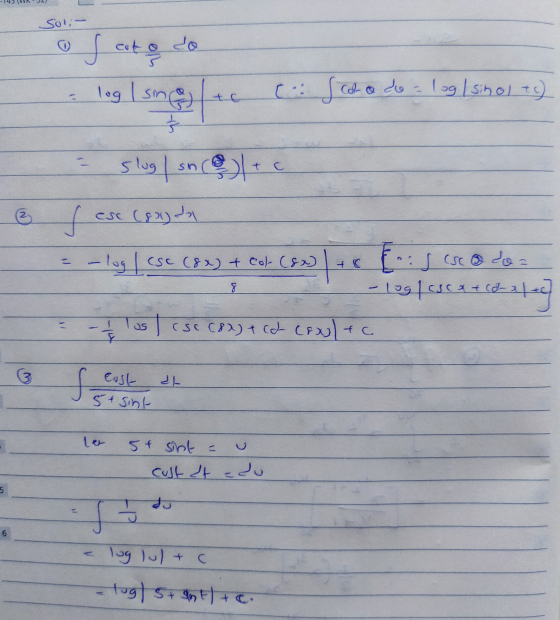 Sol:-
① ∫ cot θ/5 dθ
= log | sin(θ/5) / (1/5) | + c (∵ ∫ cot θ dθ = log|sin θ| + c)
= 5 log | sin(θ/5) | + c
② ∫ csc (8x) dx
= - log | csc (8x) + cot (8x) / 8 | + c [∵ ∫ csc θ dθ =
- log|csc x + cot x| + c]
= - 1/8 log | csc (8x) + cot (8x) | + c.
③ ∫ cost / (5 + sint) dt
let 5 + sint = u
cost dt = du
= ∫ 1/u du
= log |u| + c
= log | 5 + sint | + c.